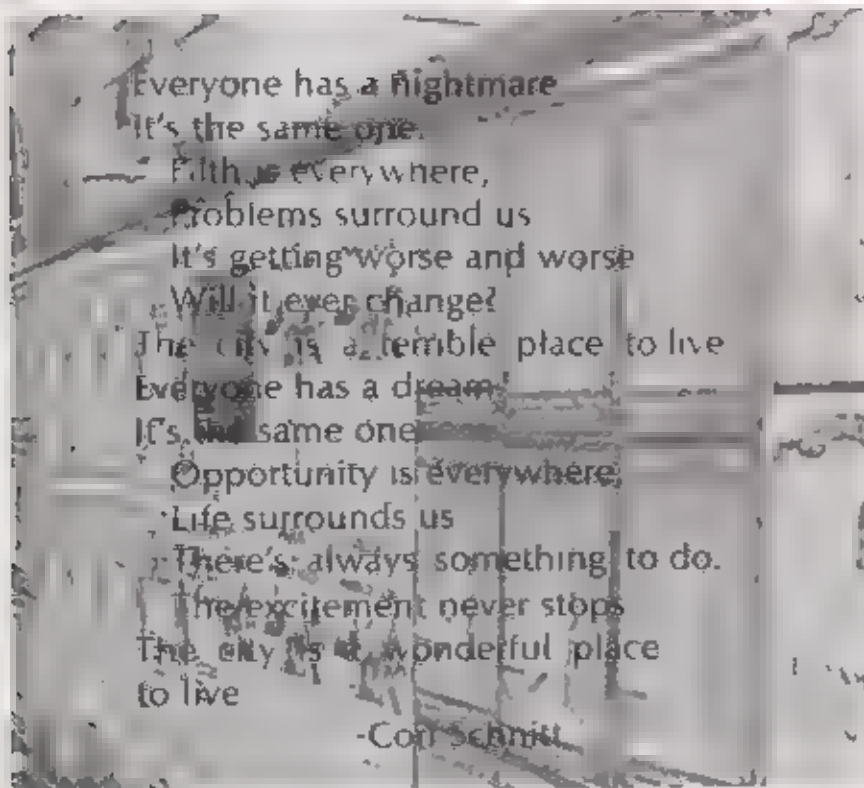 Everyone has a nightmare
It's the same one.
Filth is everywhere,
Problems surround us
It's getting worse and worse
Will it ever change?
The city is a terrible place to live
Everyone has a dream
It's the same one
Opportunity is everywhere,
Life surrounds us
There's always something to do.
The excitement never stops
The city is a wonderful place
to live
-Cori Schnitt